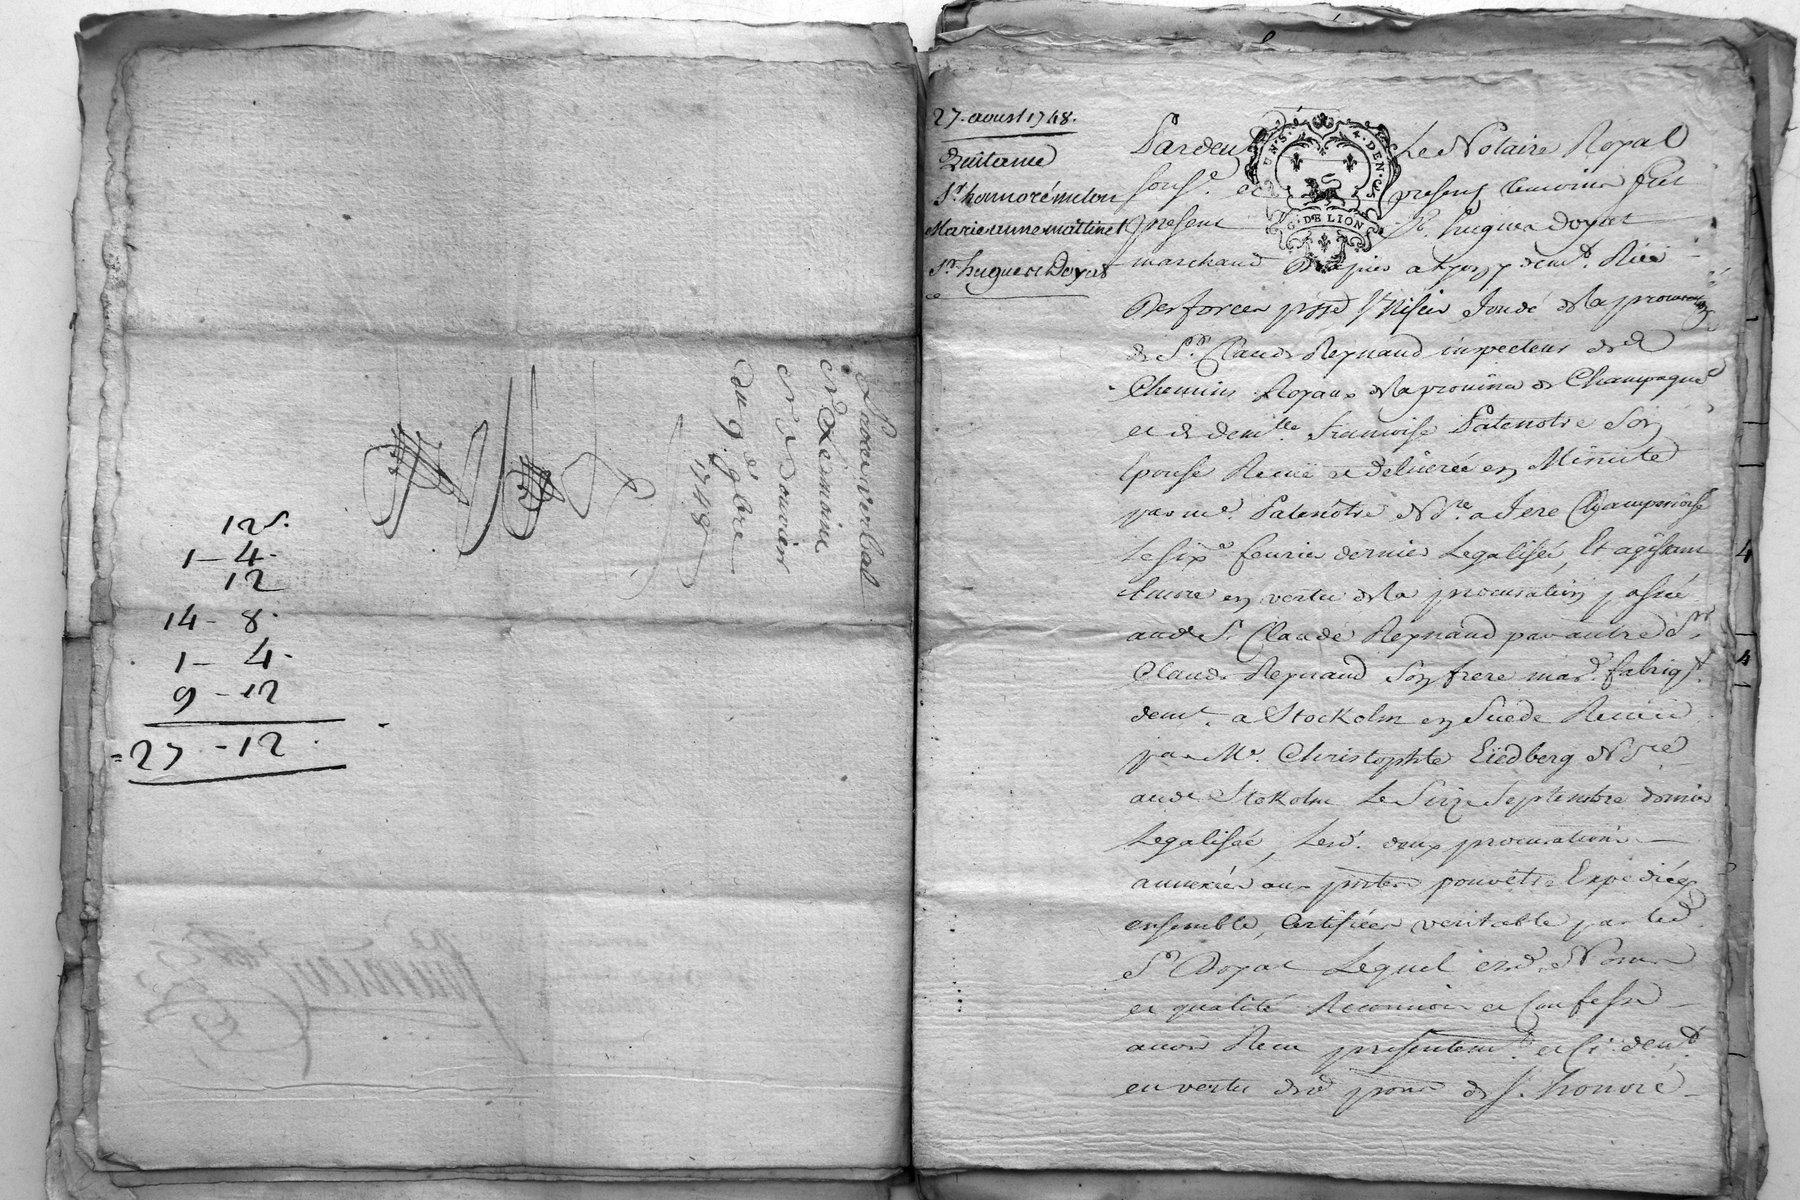 Procès verbal
du 9.e 7bre
1748
12 s.
1 - 4.
12
14 - 8.
1 - 4.
9 - 12
27 - 12
27. aoust 1748.
Quitance
Sr. honnoré melon
Marie anne mattinet
Sr. hugues Doyat
UN S. 4. DEN.
G. DE LION
Pardeut Le Notaire Royal
sousé. et presens temoins fut
present Sr. hugues Doyat
marchand Drapier a Lyon y demt. Rüe
de Sr. Claude Reynaud inspecteur de
Chemins Royaux de la province de Champagne
et de demlle. Francoise Patenotre Son
Epouse Receüe et delivrée en Minute
par me. Patenotre Nre. a Fere Champenoise
Le sixe. fevrier dernier Legalisée, Et agissant
Encore en vertu de la procuration passée
aud. Sr. Claude Reynaud par autre Sr.
Claude Reynaud Son frere mard. fabriqt.
demt. a Stockolm en Suede Receüe
par Me. Christophle Eiedberg Nre
aud. Stokolm Le Seize Septembre dernier
Legalisée, Lesd. deux procurations
annexées aux
ensemble, Certifiées veritable par led.
Sr. Doyat Lequel esd. Noms
et qualité Reconnoit et Confesse
avoir Receu presentemt. et Cy devt.
en vertu desd. de Sr. honoré